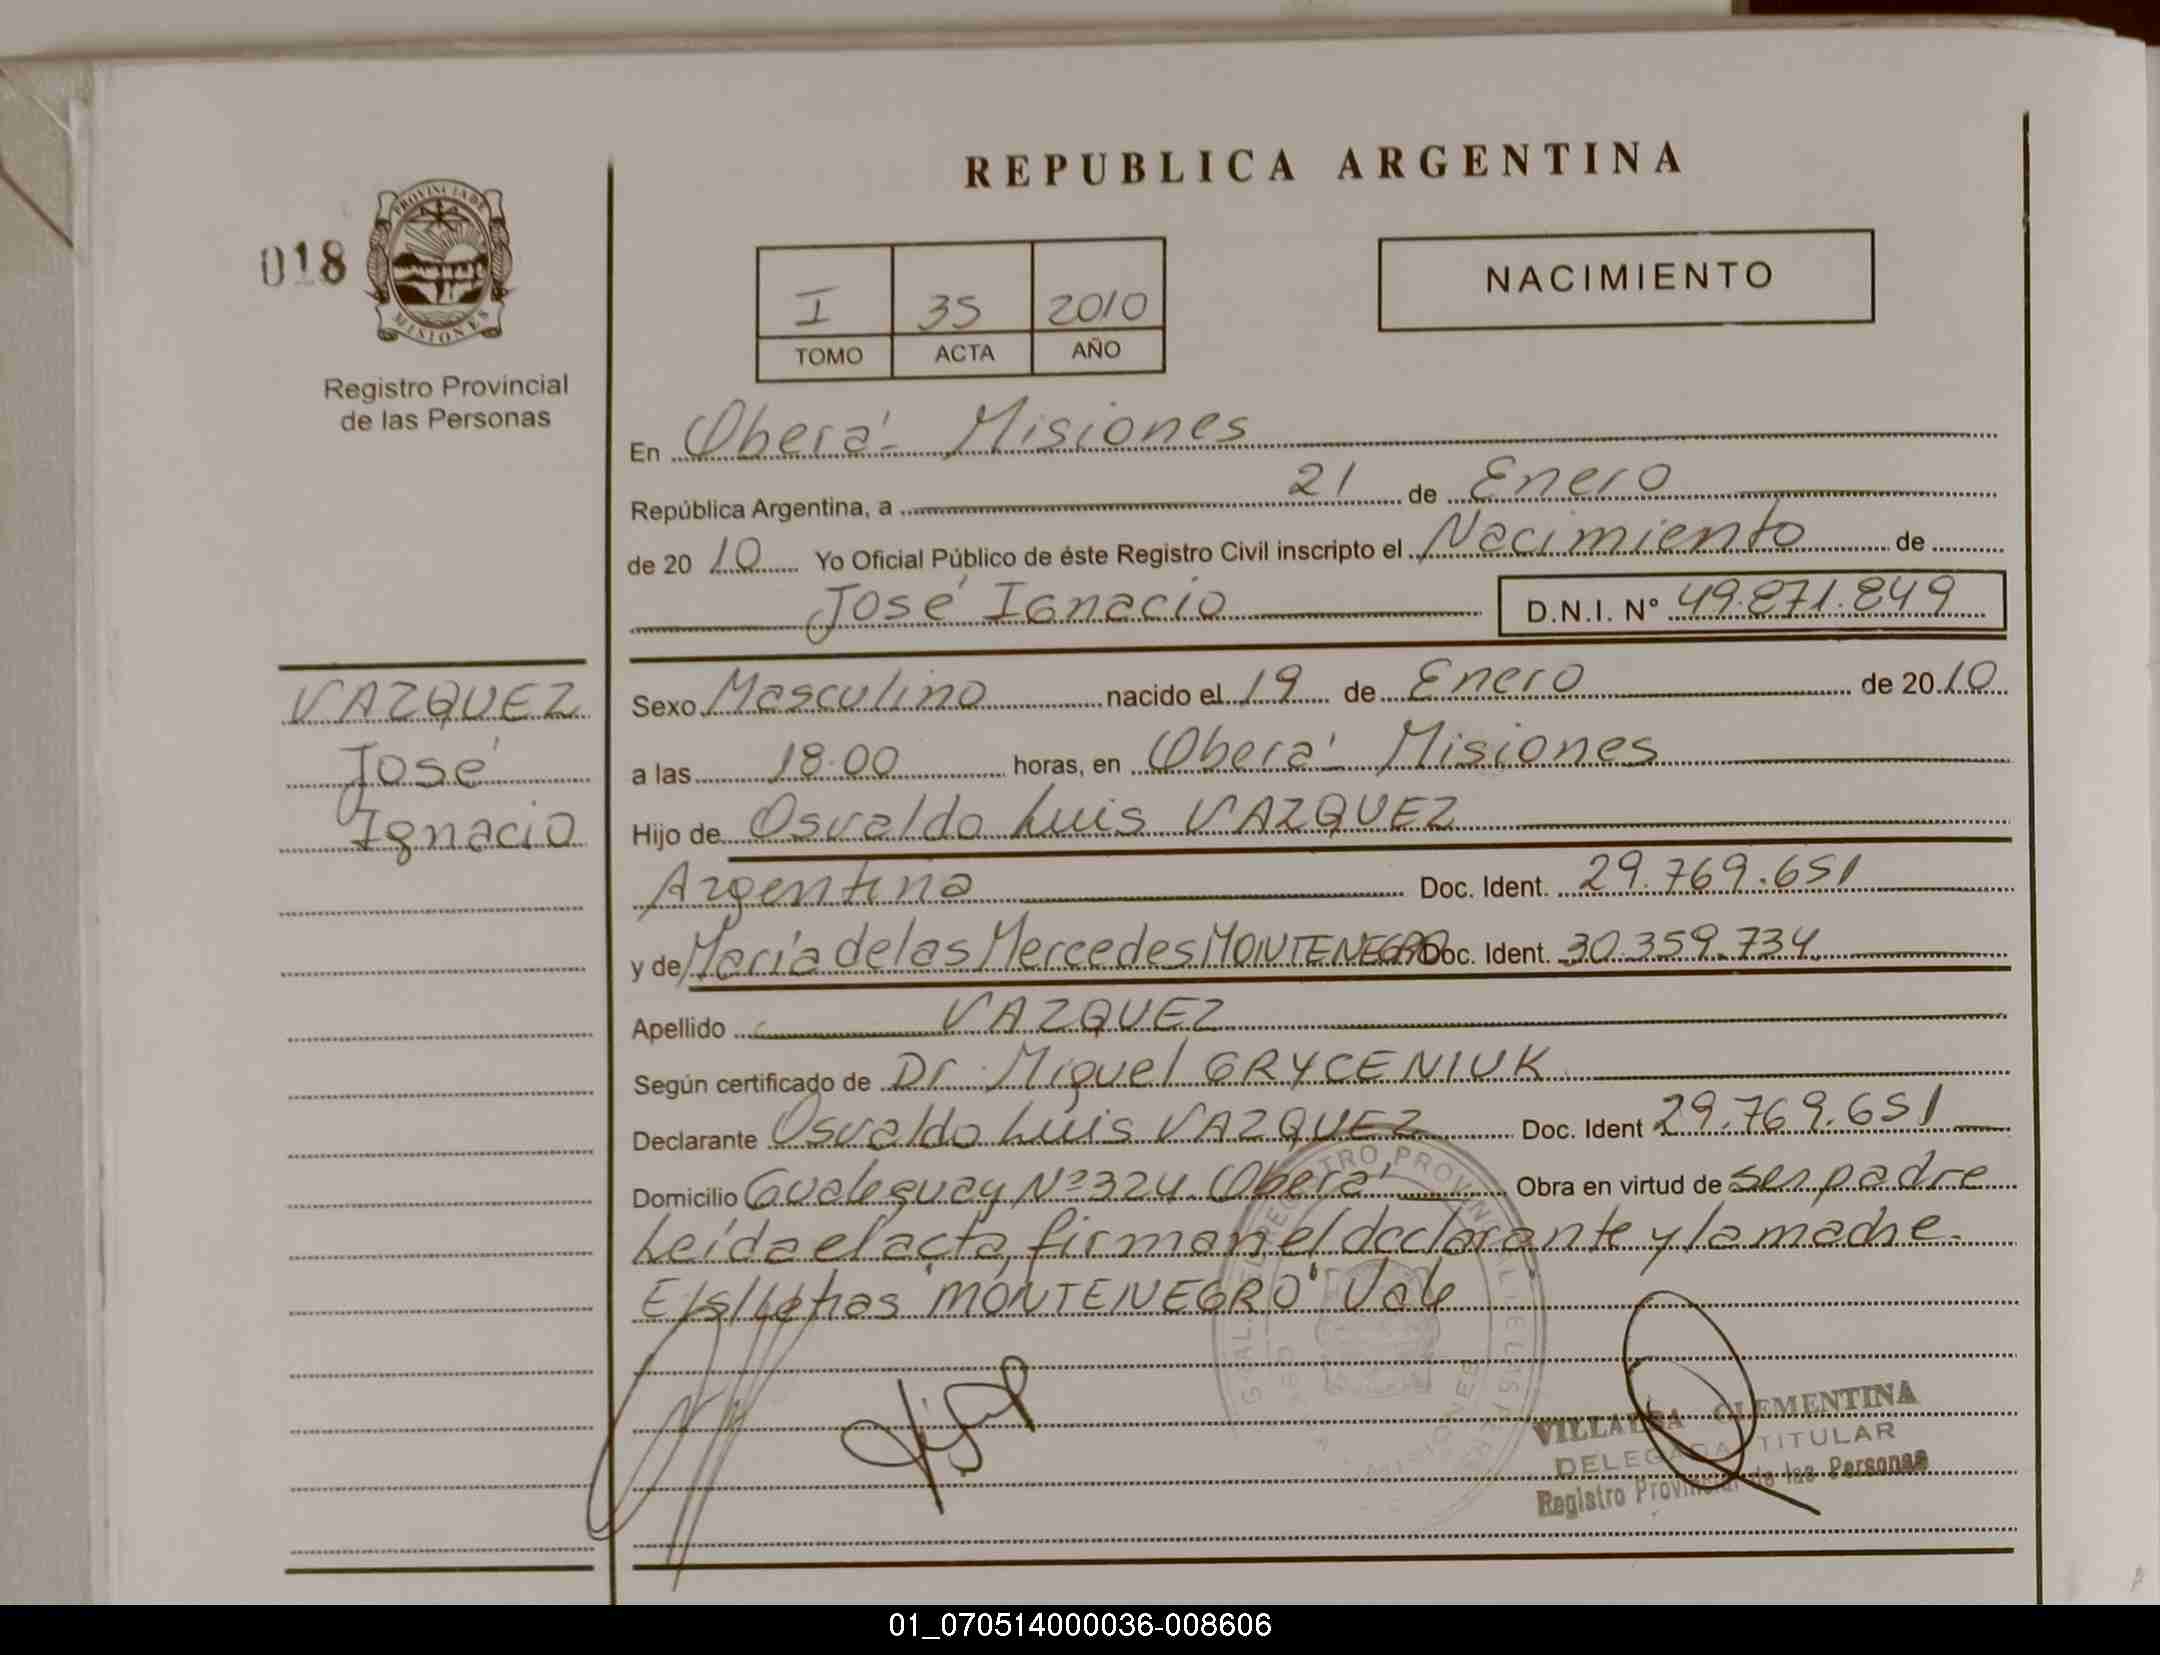 REPUBLICA ARGENTINA
018
PROVINCIA DE
MISIONES
Registro Provincial
de las Personas
I 35 2010
TOMO ACTA AÑO
NACIMIENTO
En Oberá - Misiones
República Argentina, a 21 de Enero
de 2010 Yo Oficial Público de éste Registro Civil inscripto el Nacimiento de
José Ignacio D.N.I. N° 49.871.849
VAZQUEZ
José
Ignacio
Sexo Masculino nacido el 19 de Enero de 2010
a las 18.00 horas, en Oberá - Misiones
Hijo de Osvaldo Luis VAZQUEZ
Argentina Doc. Ident. 29.769.651
y de María de las Mercedes MONTENEGRO Doc. Ident. 30.359.734
Apellido VAZQUEZ
Según certificado de Dr. Miguel GRYCENIUK
Declarante Osvaldo Luis VAZQUEZ Doc. Ident 29.769.651
Domicilio Gualeguay Nº 324 Oberá Obra en virtud de ser padre
Leída el acta, firman el declarante y la madre.
"MONTENEGRO" Vale
VILLALBA CLEMENTINA
DELEGADA TITULAR
Registro Provincial de las Personas
01_070514000036-008606